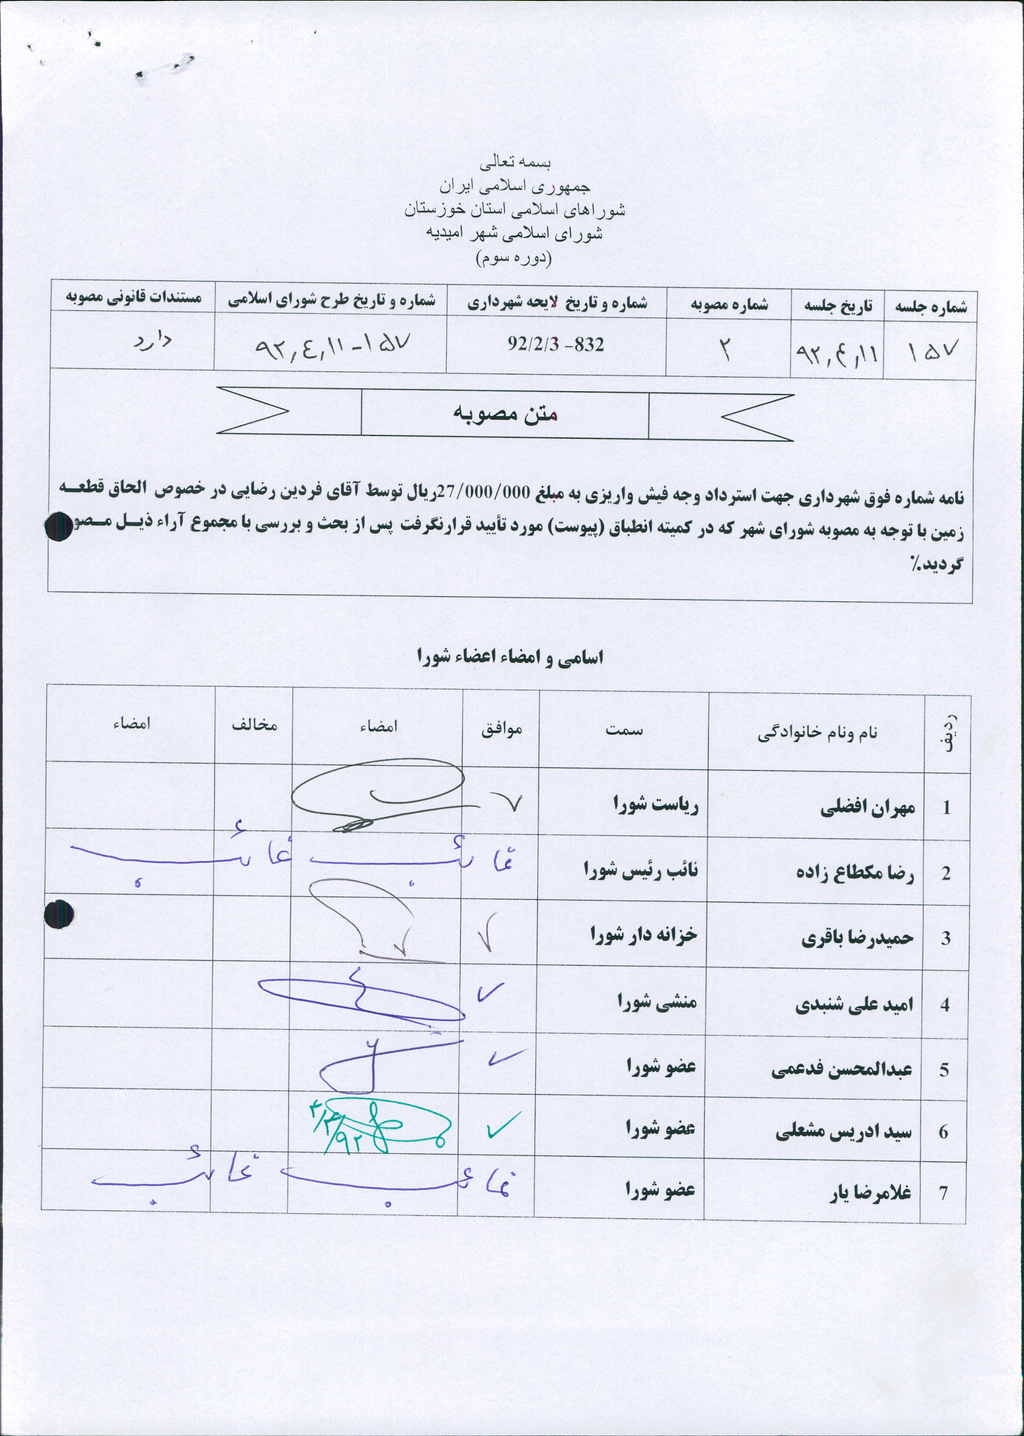 بسمه تعالی
جمهوری اسلامی ایران
شوراهای اسلامی استان خوزستان
شورای اسلامی شهر امیدیه
(دوره سوم)
شماره جلسه تاریخ جلسه شماره مصوبه شماره و تاریخ لایحه شهرداری شماره و تاریخ طرح شورای اسلامی مستندات قانونی مصوبه
۱۵۷ ۹۲,۴,۱۱ ۲ 92/2/3-832 ۱۵۷-۹۲,۴,۱۱ دارد
متن مصوبه
نامه شماره فوق شهرداری جهت استرداد وجه فیش واریزی به مبلغ 27/000/000ریال توسط آقای فردین رضایی در خصوص الحاق قطعه
زمین با توجه به مصوبه شورای شهر که در کمیته انطباق (پیوست) مورد تأیید قرارنگرفت پس از بحث و بررسی با مجموع آراء ذیل مصو
گردید.٪
اسامی و امضاء اعضاء شورا
ردیف نام ونام خانوادگی سمت موافق امضاء مخالف امضاء
1 مهران افضلی ریاست شورا ✓
2 رضا مکطاع زاده نائب رئیس شورا غائب غائب
3 حمیدرضا باقری خزانه دار شورا ✓
4 امید علی شنبدی منشی شورا ✓
5 عبدالمحسن فدعمی عضو شورا ✓
6 سید ادریس مشعلی عضو شورا ✓
7 غلامرضا یار عضو شورا غائب غائب